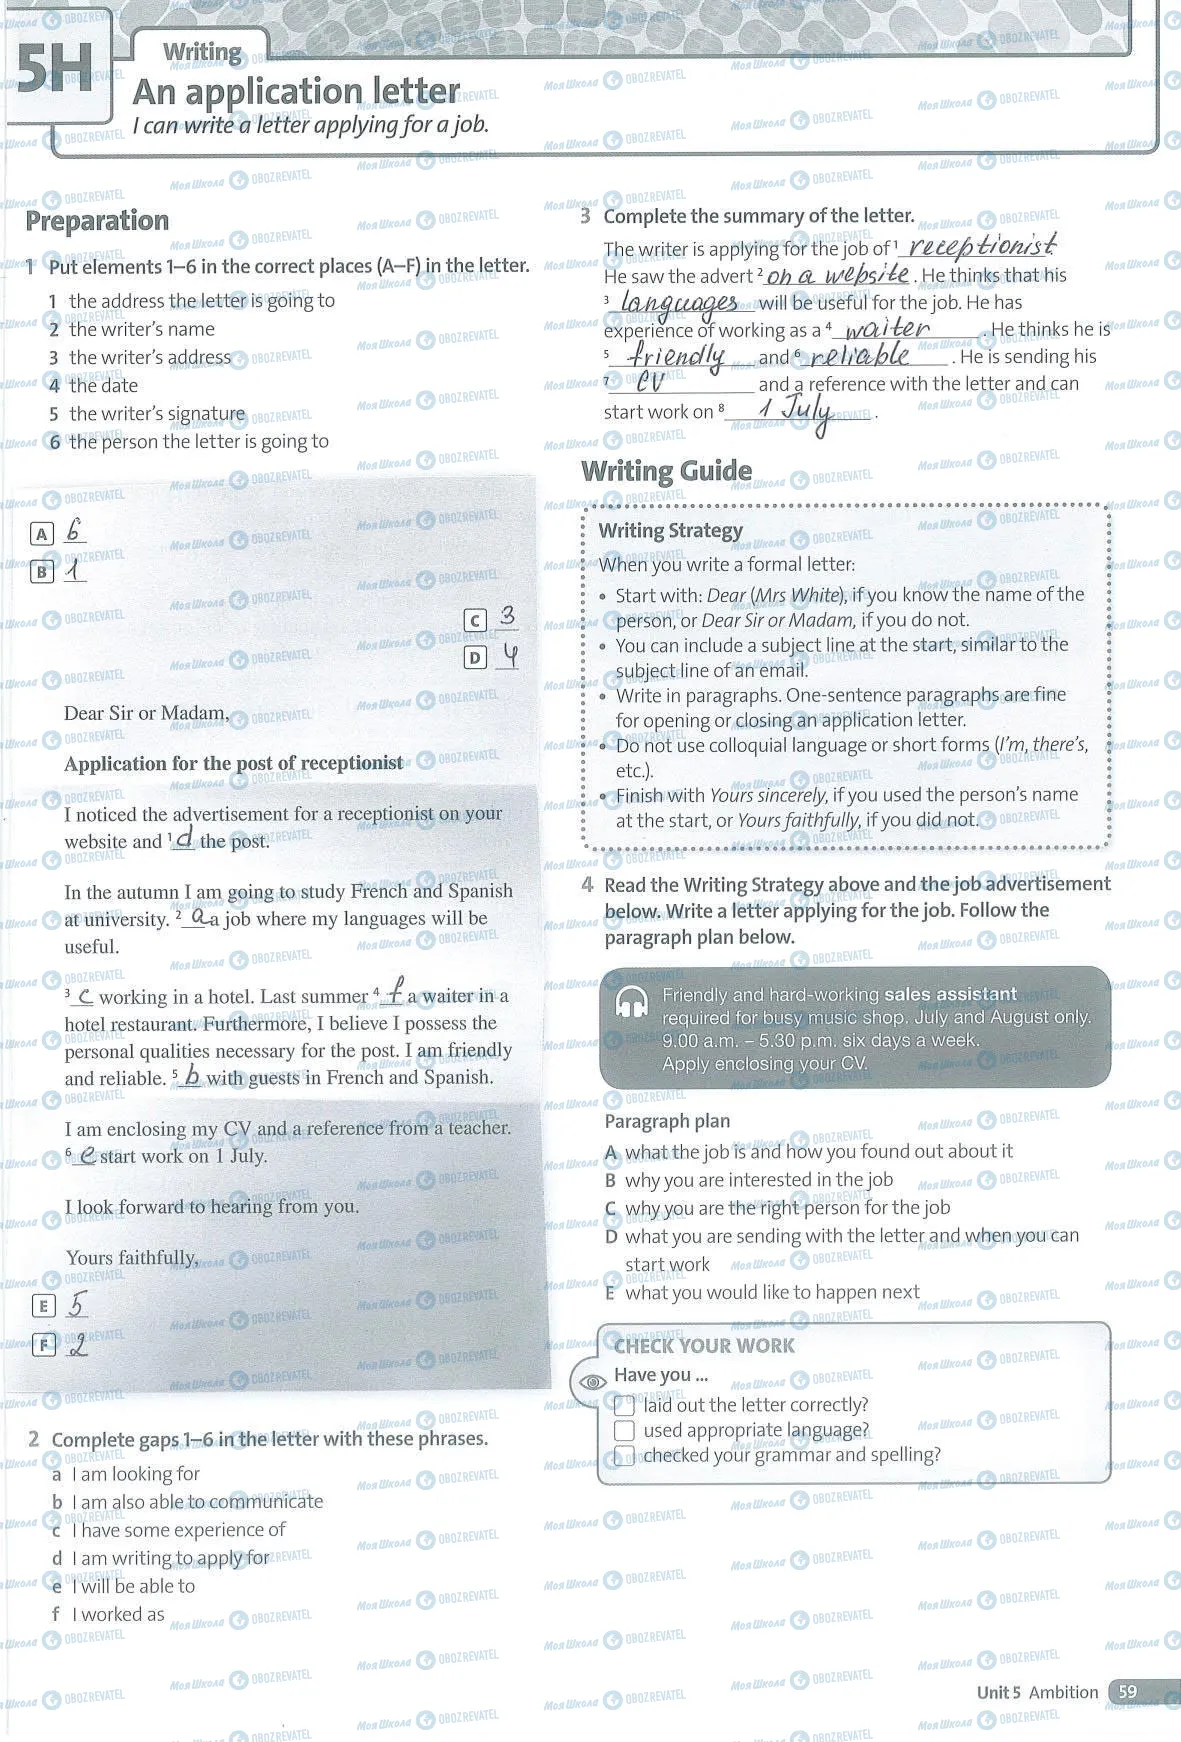 5H
Writing
An application letter
I can write a letter applying for a job.
Preparation
1 Put elements 1–6 in the correct places (A–F) in the letter.
1 the address the letter is going to
2 the writer's name
3 the writer's address
4 the date
5 the writer's signature
6 the person the letter is going to
A 6
B 1
C 3
D 4
Dear Sir or Madam,
Application for the post of receptionist
I noticed the advertisement for a receptionist on your
website and ¹ d the post.
In the autumn I am going to study French and Spanish
at university. ² a a job where my languages will be
useful.
³ c working in a hotel. Last summer ⁴ f a waiter in a
hotel restaurant. Furthermore, I believe I possess the
personal qualities necessary for the post. I am friendly
and reliable. ⁵ b with guests in French and Spanish.
I am enclosing my CV and a reference from a teacher.
⁶ e start work on 1 July.
I look forward to hearing from you.
Yours faithfully,
E 5
F 2
2 Complete gaps 1–6 in the letter with these phrases.
a I am looking for
b I am also able to communicate
c I have some experience of
d I am writing to apply for
e I will be able to
f I worked as
3 Complete the summary of the letter.
The writer is applying for the job of ¹ receptionist.
He saw the advert ² on a website. He thinks that his
³ languages will be useful for the job. He has
experience of working as a ⁴ waiter. He thinks he is
⁵ friendly and ⁶ reliable. He is sending his
⁷ CV and a reference with the letter and can
start work on ⁸ 1 July.
Writing Guide
Writing Strategy
When you write a formal letter:
• Start with: Dear (Mrs White), if you know the name of the
person, or Dear Sir or Madam, if you do not.
• You can include a subject line at the start, similar to the
subject line of an email.
• Write in paragraphs. One-sentence paragraphs are fine
for opening or closing an application letter.
• Do not use colloquial language or short forms (I'm, there's,
etc.).
• Finish with Yours sincerely, if you used the person's name
at the start, or Yours faithfully, if you did not.
4 Read the Writing Strategy above and the job advertisement
below. Write a letter applying for the job. Follow the
paragraph plan below.
Friendly and hard-working sales assistant
required for busy music shop. July and August only.
9.00 a.m. – 5.30 p.m. six days a week.
Apply enclosing your CV.
Paragraph plan
A what the job is and how you found out about it
B why you are interested in the job
C why you are the right person for the job
D what you are sending with the letter and when you can
start work
E what you would like to happen next
CHECK YOUR WORK
Have you ...
laid out the letter correctly?
used appropriate language?
checked your grammar and spelling?
Unit 5 Ambition 59
Моя Школа OBOZREVATEL